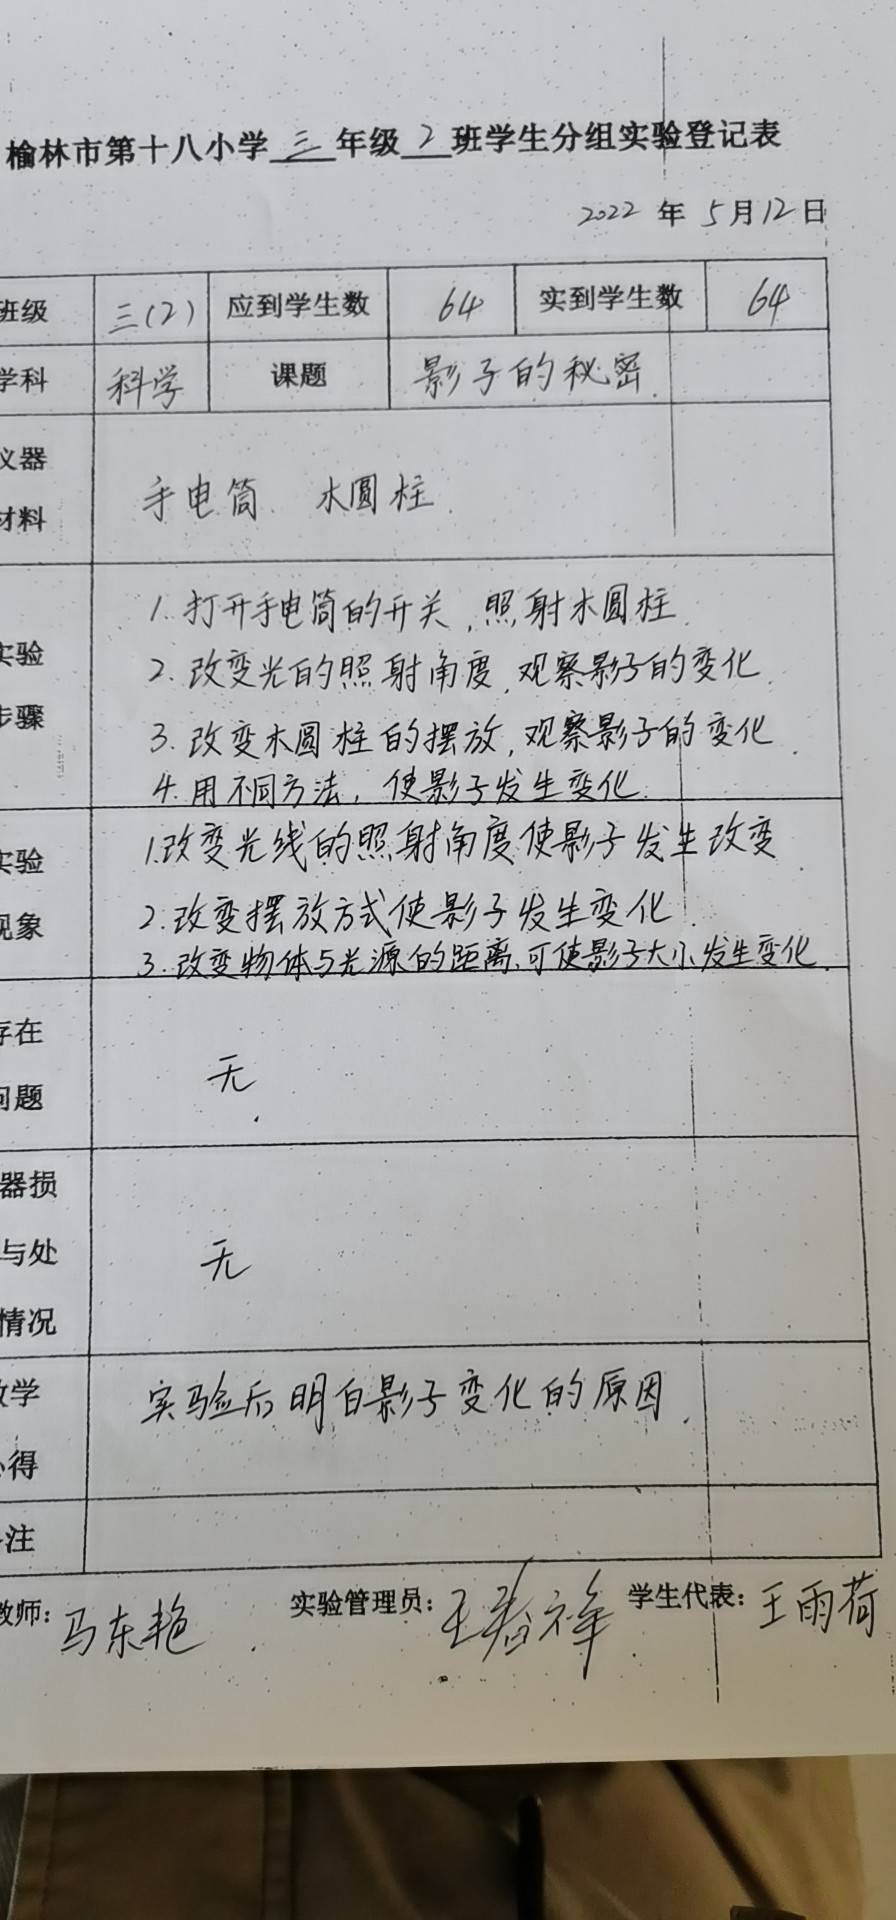 榆林市第十八小学三年级2班学生分组实验登记表
2022年5月12日
班级 三(2) 应到学生数 64 实到学生数 64
学科 科学 课题 影子的秘密
仪器
材料
手电筒 木圆柱
实验
步骤
1.打开手电筒的开关,照射木圆柱
2.改变光的照射角度,观察影子的变化.
3.改变木圆柱的摆放,观察影子的变化.
4.用不同方法,使影子发生变化.
实验
现象
1.改变光线的照射角度使影子发生改变
2.改变摆放方式使影子发生变化.
3.改变物体与光源的距离,可使影子大小发生变化.
存在
问题
无
器损
与处
情况
无
教学
心得
实验后明白影子变化的原因.
注
教师:马东艳 实验管理员:王 学生代表:王雨荷